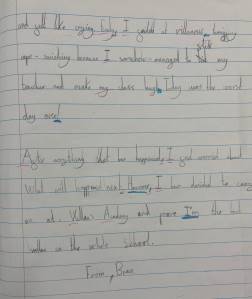 and yell like crazy. Today, I at villainous
rope - because I somehow managed to my
teacher and make my class laugh. Today was the worst
day ever!
After everything that has happened, I get worried about
what will happen next However, I have decided to carry
on at Villain Academy and prove I'm the best
villain in the whole school.
From, Bruce